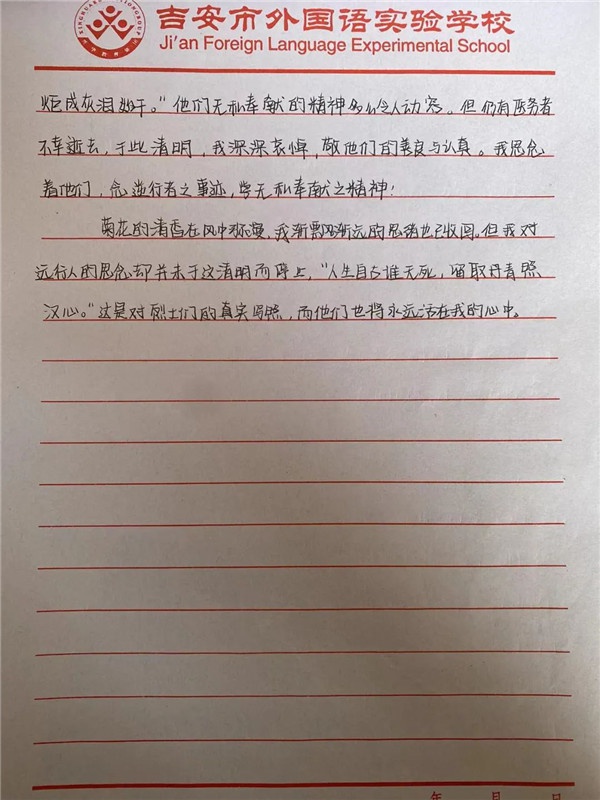 吉安市外国语实验学校
Ji'an Foreign Language Experimental School
炬成灰泪始干。"他们无私奉献的精神多么令人动容。但仍有医务者
不幸逝去，于此清明，我深深哀悼，敬他们的善良与认真。我思念
着他们，念逆行者之事迹，学无私奉献之精神！
菊花的清香在风中弥漫，我渐飘渐远的思绪也已收回。但我对
远行人的思念却并未于这清明而停止，"人生自古谁无死，留取丹青照
汉心。"这是对烈士们的真实写照，而他们也将永远活在我的心中。
年 月 日